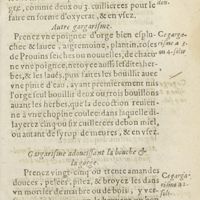 gre, comme deux ou 3. cuillierées pour le
faire en forme d'oxycrat, & en vsez.
Autre gargarisme.
Prenez vne poignee d'orge bien esplu-
chee & lauee, aigremoine, plantin, roses
de Prouins seiches ou nouuelles, de chacun
vne poignee, nettoye aussi lesdites her-
bes, & les lauez, puis faites les bouillir auec
vne pinte d'eau, ayant premierement mis
l'orge seul bouillir deux ou trois bouillons
auant les herbes, que la decoction reuien-
ne à vne chopine coulee, dans laquelle de-
layerez cinq ou six cuillierees de bon miel,
ou autant de syrop de meures, & en vsez.
Gargarisme adoucissant la bouche &
la gorge.
Prenez vingt-cinq ou trente amandes
douces, pelees, pilez, & broyez les dans
un mortier de marbre ou de bois, y ver-